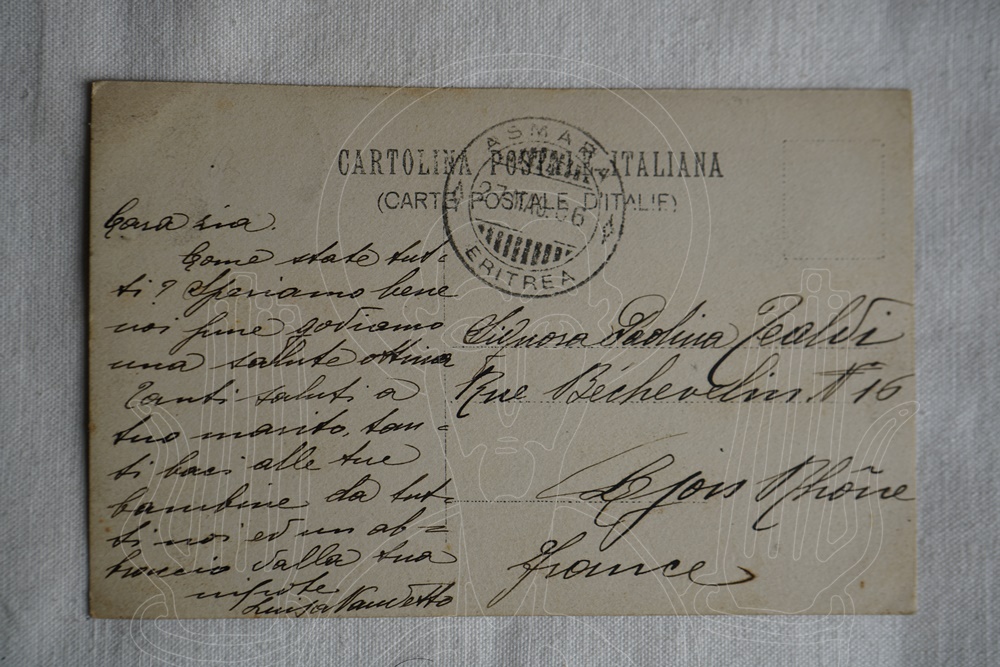 CARTOLINA POSTALE ITALIANA
(CARTE POSTALE D'ITALIE)
ASMARA
27 MAG 06
ERITREA
Cara zia.
Come state tut=
ti? Speriamo bene
noi pure godiamo
una salute ottima
Tanti saluti a
tuo marito, tan=
ti baci alle tue
bambine da tut=
ti noi ed un ab=
braccio dalla tua
nipote
Luisa
Signora Paolina
Rue Béchevelin N 16
Rhône
France